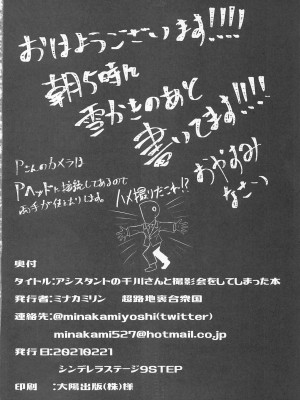 おはようございます!!!!
朝5時に
雪かきのあと
書いてます!!!!
おやすみ
なさい
Pさんのカメラは
Pヘッドに接続してあるので
両手が使えります。
ハメ撮りだこれ!?
奥付
タイトル:アシスタントの千川さんと撮影会をしてしまった本
発行者:ミナカミリン 超路地裏合衆国
連絡先:@minakamiyoshi(twitter)
minakami527@hotmail.co.jp
発行日:20210221
シンデレラステージ9STEP
印刷 :大陽出版(株)様